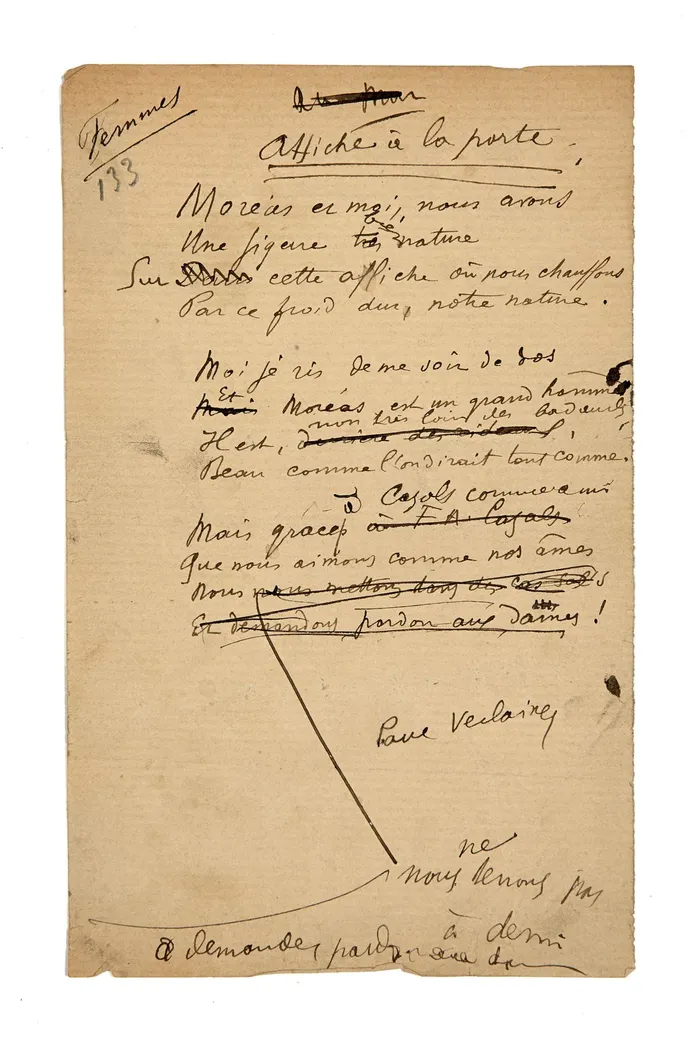 Femmes
133
Affiché à la porte.
Moréas et moi, nous avons
bien
Une figure très nature
Sur Dans cette affiche où nous chauffons
Par ce froid dur, notre nature.
Moi je ris de me voir de dos
Et
Mais Moréas est un grand homme
non très loin des badauds,
Il est, derrière des rideaux,
Beau comme l'on dirait tout comme.
à Cazals comme ami
Mais grâce à F. A. Cazals
Que nous aimons comme nos âmes
Nous nous mettons dans des
Et demandons pardon aux dames !
Paul Verlaine
ne
nous tenons pas
à demi
à demander pardon aux